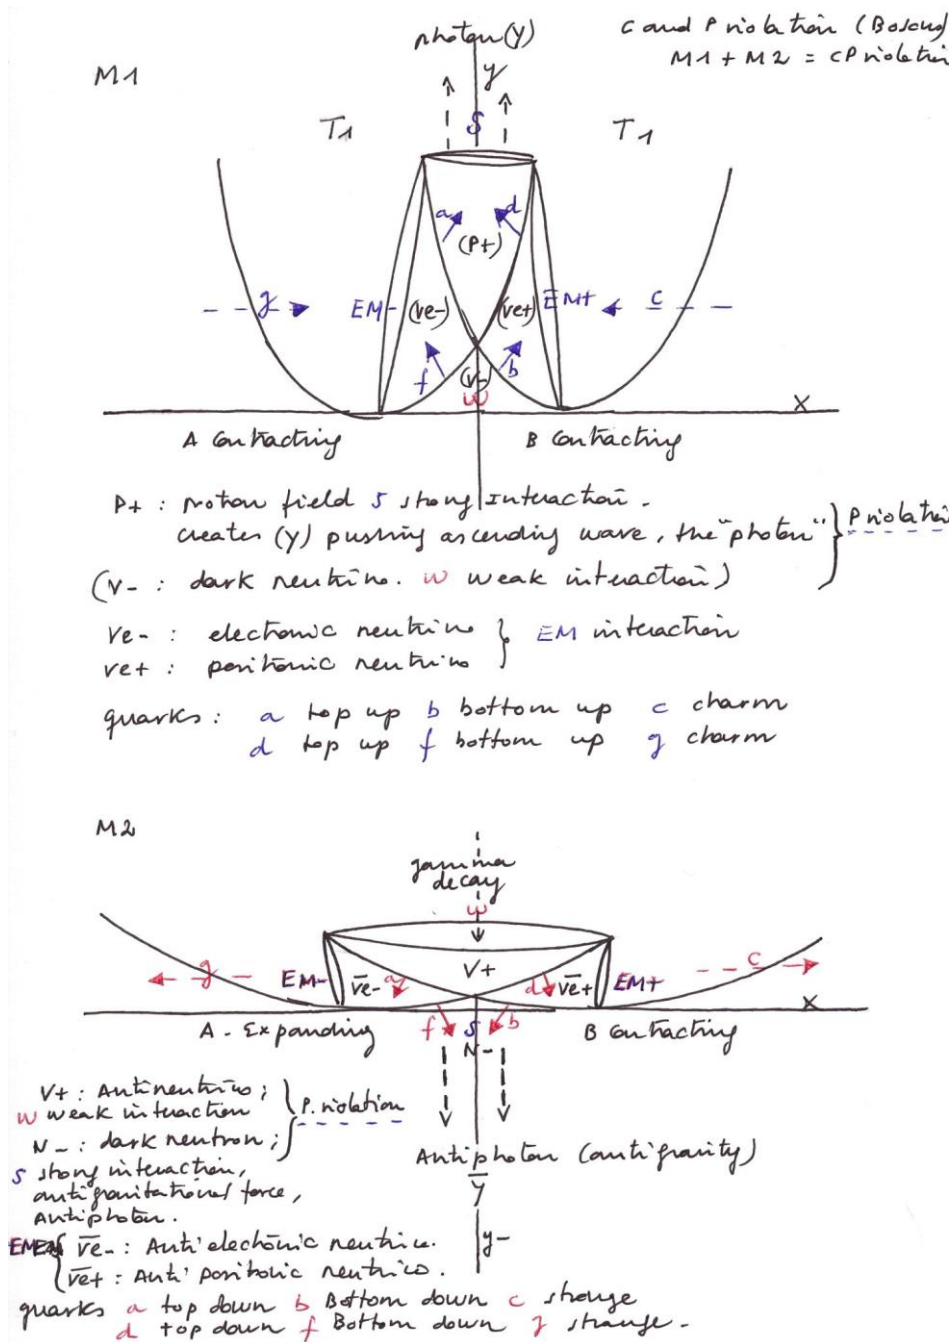 photon (y)
C and P violation (Bosons)
M1 + M2 = CP violation
M1
y
T1 S T1
a d
(P+)
g EM- (ve-) (ve+) EM+ c
f (v-) b
w
X
A Contracting B Contracting
P+ : Motion field S strong Interaction.
creates (y) pushing ascending wave, the "photon"
P violation
(v- : dark neutrino. w weak interaction)
ve- : electronic neutrino
EM interaction
ve+ : positronic neutrino
quarks : a top up b bottom up c charm
d top up f bottom up g charm
M2
gamma
decay
w
V+
g EM- v̅e- a d v̅e+ EM+ c
X
A - Expanding f S b B Contracting
N-
V+ : Antineutrino;
w weak interaction
P. violation
N- : dark neutron;
S strong interaction,
antigravitational force,
Antiphoton.
Antiphoton (antigravity)
y̅
y-
EM v̅e- : Anti electronic neutrino.
v̅e+ : Anti positronic neutrino.
quarks a top down b Bottom down c strange
d top down f Bottom down g strange.